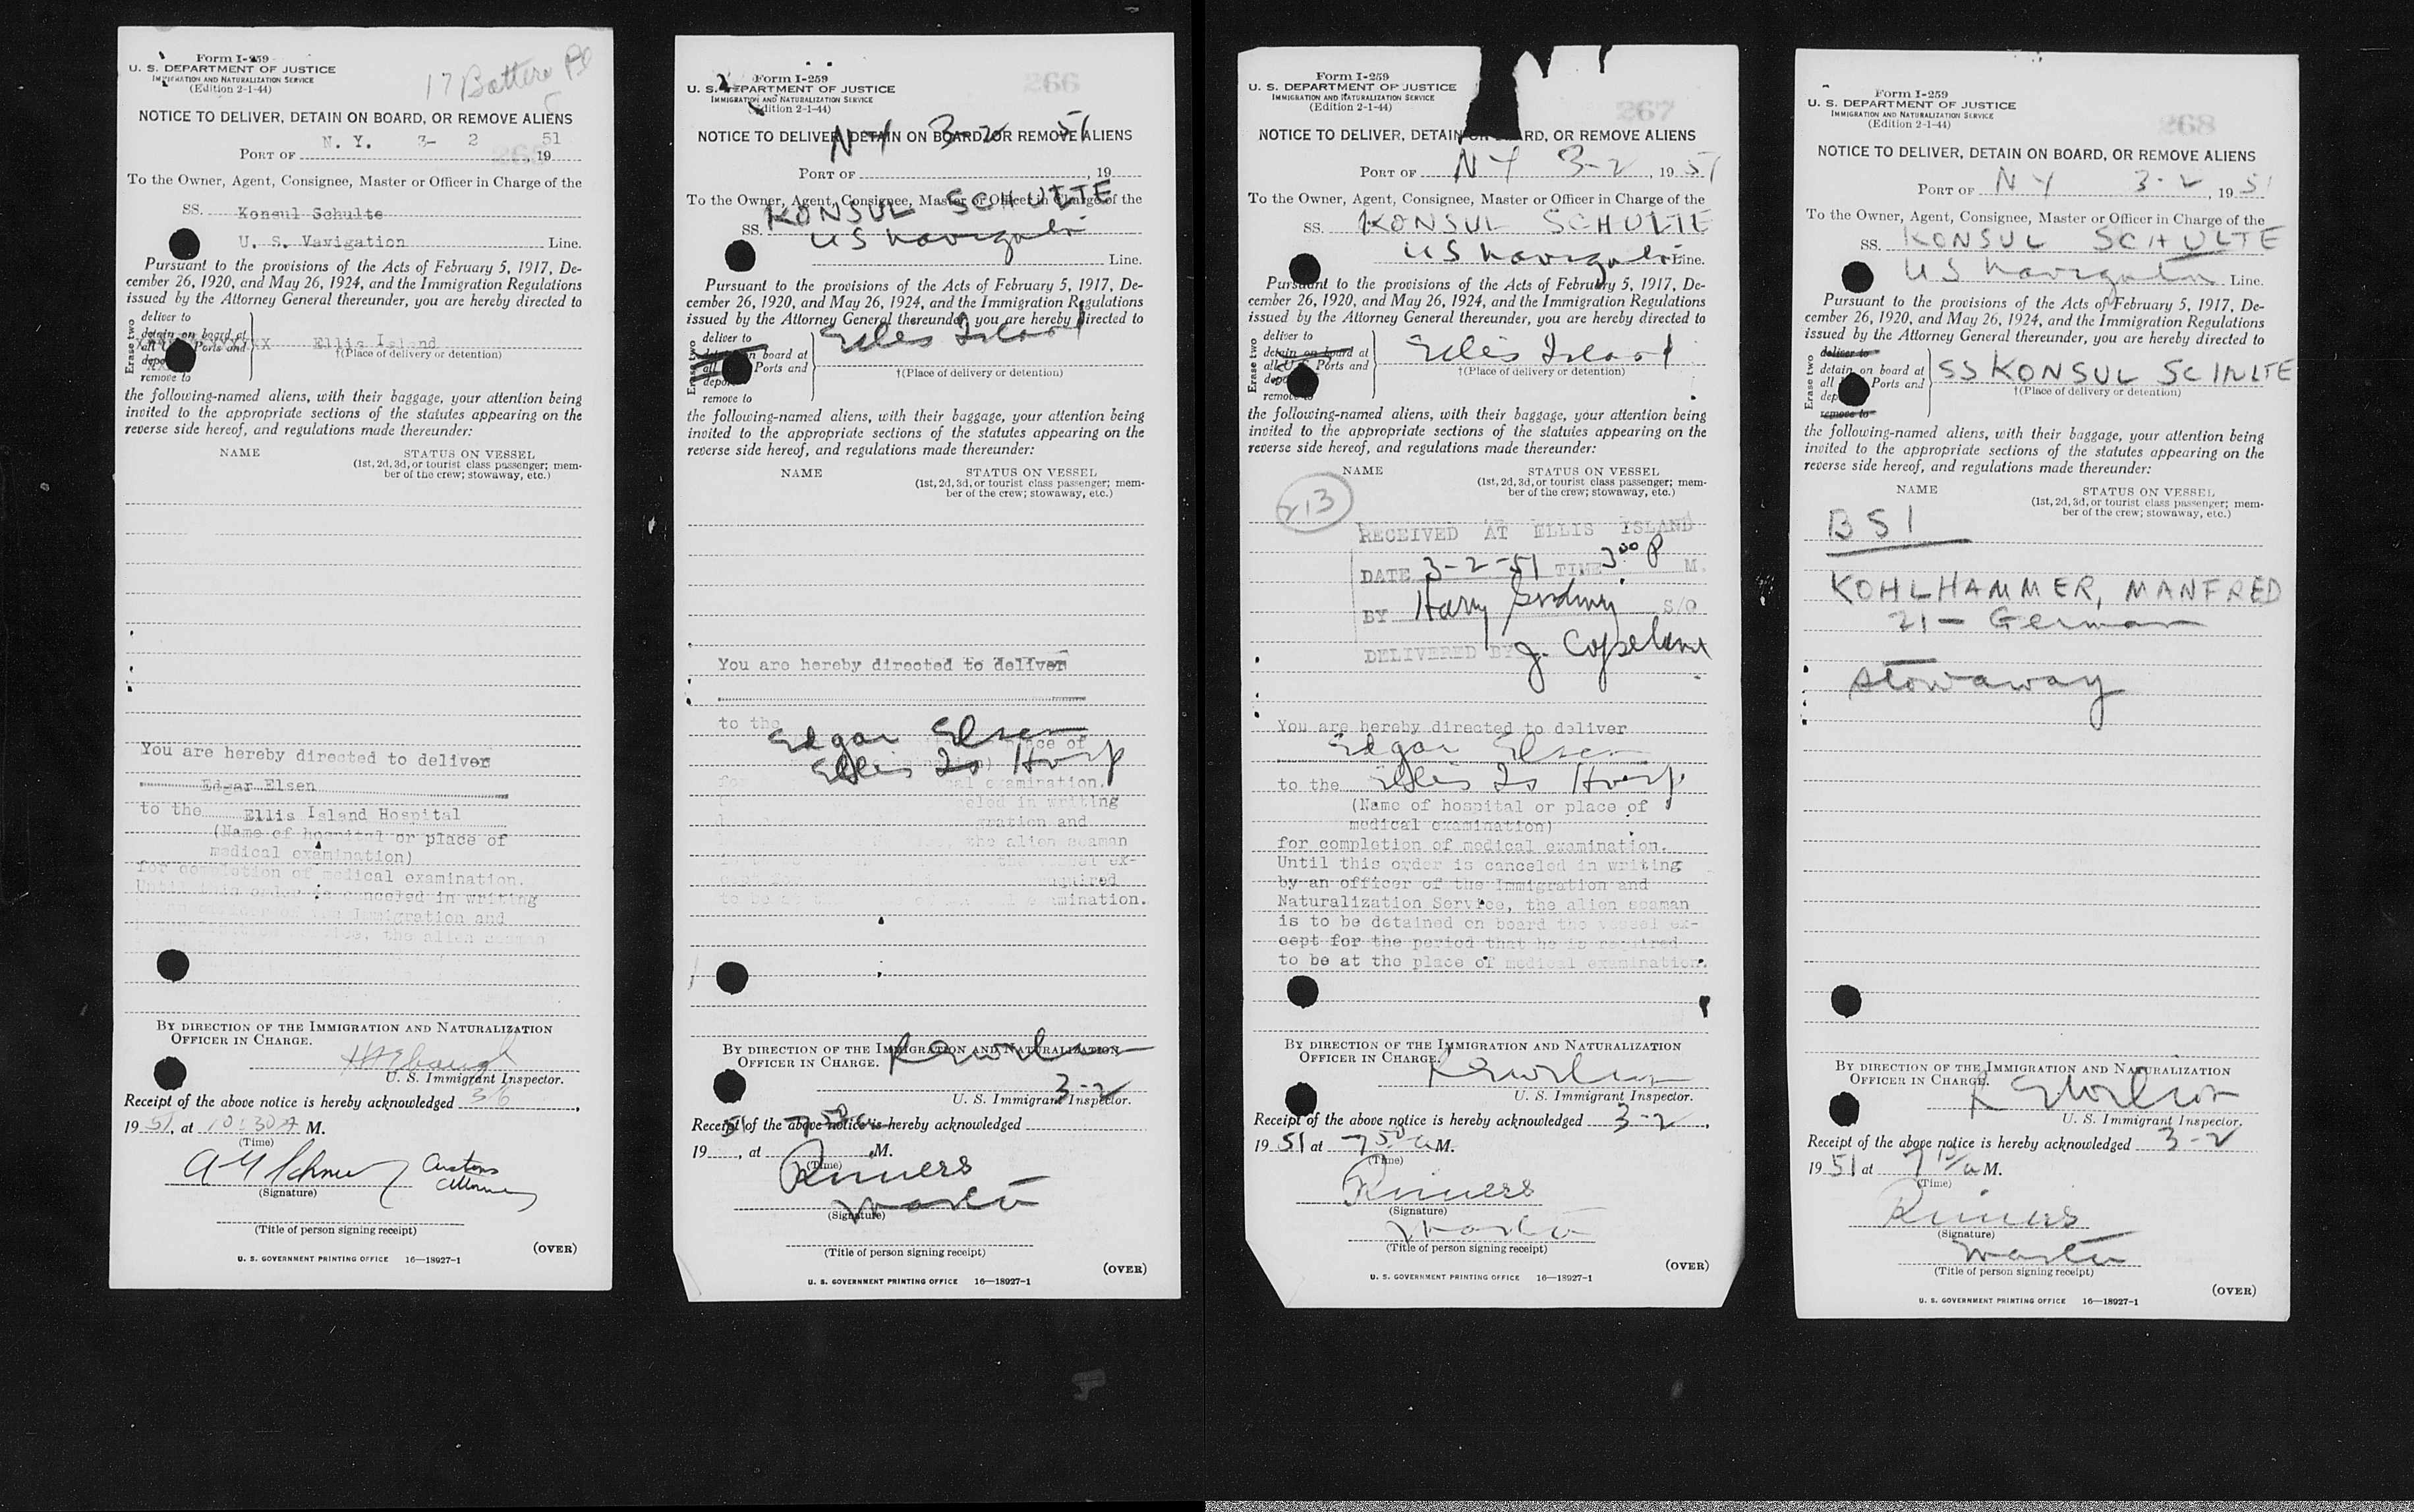 Form I-259
U. S. DEPARTMENT OF JUSTICE
IMMIGRATION AND NATURALIZATION SERVICE
(Edition 2-1-44)
17 Battery Pl
NOTICE TO DELIVER, DETAIN ON BOARD, OR REMOVE ALIENS
265
PORT OF N. Y. 3- 2, 1951
To the Owner, Agent, Consignee, Master or Officer in Charge of the
SS. Konsul Schulte
U. S. Vavigation Line.
Pursuant to the provisions of the Acts of February 5, 1917, De-
cember 26, 1920, and May 26, 1924, and the Immigration Regulations
issued by the Attorney General thereunder, you are hereby directed to
Erase two
deliver to
detain on board at
all Ports and
remove to
Ellis Island
†(Place of delivery or detention)
the following-named aliens, with their baggage, your attention being
invited to the appropriate sections of the statutes appearing on the
reverse side hereof, and regulations made thereunder:
NAME STATUS ON VESSEL
(1st, 2d, 3d, or tourist class passenger; mem-
ber of the crew; stowaway, etc.)
You are hereby directed to deliver
Edgar Elsen
to the Ellis Island Hospital
(Name of hospital or place of
medical examination)
for completion of medical examination.
Until this order is canceled in writing
Immigration and
the alien seaman
BY DIRECTION OF THE IMMIGRATION AND NATURALIZATION
OFFICER IN CHARGE.
U. S. Immigrant Inspector.
Receipt of the above notice is hereby acknowledged 3/6,
1951, at 10:30 A M.
(Time)
Customs
Attorney
(Signature)
(Title of person signing receipt)
(OVER)
U. S. GOVERNMENT PRINTING OFFICE 16—18927-1
Form I-259
266
U. S. DEPARTMENT OF JUSTICE
IMMIGRATION AND NATURALIZATION SERVICE
(Edition 2-1-44)
NOTICE TO DELIVER, DETAIN ON BOARD, OR REMOVE ALIENS
N Y 3-2 51
PORT OF , 19
To the Owner, Agent, Consignee, Master or Officer in Charge of the
SS. KONSUL SCHULTE
US Navigation
Line.
Pursuant to the provisions of the Acts of February 5, 1917, De-
cember 26, 1920, and May 26, 1924, and the Immigration Regulations
issued by the Attorney General thereunder, you are hereby directed to
Ellis Island
Erase two
deliver to
on board at
all Ports and
remove to
†(Place of delivery or detention)
the following-named aliens, with their baggage, your attention being
invited to the appropriate sections of the statutes appearing on the
reverse side hereof, and regulations made thereunder:
NAME STATUS ON VESSEL
(1st, 2d, 3d, or tourist class passenger; mem-
ber of the crew; stowaway, etc.)
You are hereby directed to deliver
to the
Edgar Elsen
Ellis Is Hosp
place of
for examination.
canceled in writing
Immigration and
the alien seaman
the vessel ex-
required
examination.
BY DIRECTION OF THE IMMIGRATION AND NATURALIZATION
OFFICER IN CHARGE.
3-2
U. S. Immigrant Inspector.
51 7 50 a
Receipt of the above notice is hereby acknowledged
19 , at M.
(Time)
Rimers
Master
(Signature)
(Title of person signing receipt)
(OVER)
U. S. GOVERNMENT PRINTING OFFICE 16—18927-1
Form I-259
U. S. DEPARTMENT OF JUSTICE
IMMIGRATION AND NATURALIZATION SERVICE
(Edition 2-1-44)
267
NOTICE TO DELIVER, DETAIN ON BOARD, OR REMOVE ALIENS
PORT OF N Y 3-2, 1951
To the Owner, Agent, Consignee, Master or Officer in Charge of the
SS. KONSUL SCHULTE
US Navigation Line.
Pursuant to the provisions of the Acts of February 5, 1917, De-
cember 26, 1920, and May 26, 1924, and the Immigration Regulations
issued by the Attorney General thereunder, you are hereby directed to
Erase two
deliver to
detain on board at
all U. S. Ports and
remove to
Ellis Island
†(Place of delivery or detention)
the following-named aliens, with their baggage, your attention being
invited to the appropriate sections of the statutes appearing on the
reverse side hereof, and regulations made thereunder:
NAME STATUS ON VESSEL
(1st, 2d, 3d, or tourist class passenger; mem-
ber of the crew; stowaway, etc.)
213
RECEIVED AT ELLIS ISLAND
DATE 3-2-51 TIME 3 00 P M.
BY Harry S/O
DELIVERED BY J. Copeland
You are hereby directed to deliver
Edgar Elsen
to the Ellis Is Hosp
(Name of hospital or place of
medical examination)
for completion of medical examination.
Until this order is canceled in writing
by an officer of the Immigration and
Naturalization Service, the alien seaman
is to be detained on board the vessel ex-
cept for the period that he is required
to be at the place of medical examination.
BY DIRECTION OF THE IMMIGRATION AND NATURALIZATION
OFFICER IN CHARGE.
U. S. Immigrant Inspector.
Receipt of the above notice is hereby acknowledged 3-2,
1951 at 7 50 a M.
(Time)
Rimers
(Signature)
Master
(Title of person signing receipt)
(OVER)
U. S. GOVERNMENT PRINTING OFFICE 16—18927-1
Form I-259
U. S. DEPARTMENT OF JUSTICE
IMMIGRATION AND NATURALIZATION SERVICE
(Edition 2-1-44)
268
NOTICE TO DELIVER, DETAIN ON BOARD, OR REMOVE ALIENS
PORT OF N Y 3-2, 1951
To the Owner, Agent, Consignee, Master or Officer in Charge of the
SS. KONSUL SCHULTE
US Navigation Line.
Pursuant to the provisions of the Acts of February 5, 1917, De-
cember 26, 1920, and May 26, 1924, and the Immigration Regulations
issued by the Attorney General thereunder, you are hereby directed to
Erase two
deliver to
detain on board at
all Ports and
remove to
SS KONSUL SCHULTE
†(Place of delivery or detention)
the following-named aliens, with their baggage, your attention being
invited to the appropriate sections of the statutes appearing on the
reverse side hereof, and regulations made thereunder:
NAME STATUS ON VESSEL
(1st, 2d, 3d, or tourist class passenger; mem-
ber of the crew; stowaway, etc.)
BSI
KOHLHAMMER, MANFRED
21 — German
Stowaway
BY DIRECTION OF THE IMMIGRATION AND NATURALIZATION
OFFICER IN CHARGE.
U. S. Immigrant Inspector.
Receipt of the above notice is hereby acknowledged 3-2
1951 at 7 15 a M.
(Time)
Rimers
(Signature)
Master
(Title of person signing receipt)
(OVER)
U. S. GOVERNMENT PRINTING OFFICE 16—18927-1